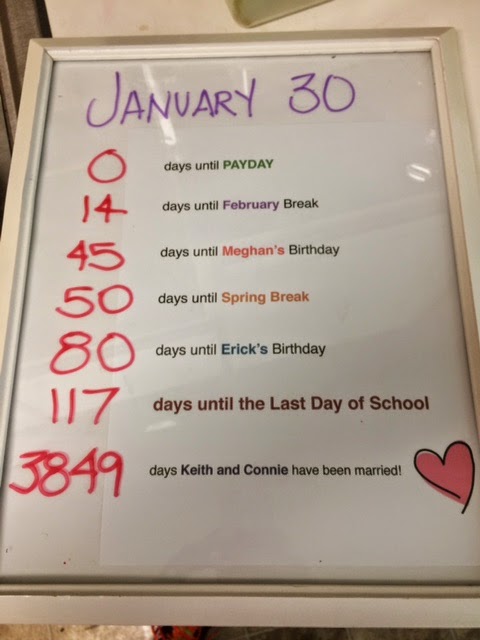 JANUARY 30
0 days until PAYDAY
14 days until February Break
45 days until Meghan's Birthday
50 days until Spring Break
80 days until Erick's Birthday
117 days until the Last Day of School
3849 days Keith and Connie have been married!